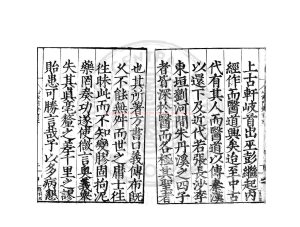 上古軒岐首出巫彭繼起內
經作而醫道興矣迨至中古
代有其人而醫道以傳秦漢
以還下及近代若張長沙李
東垣劉河間朱丹溪之四子
者皆深於醫而名極其聖者
也其所著分書口義傳布既
久不能無舛而世之庸士往
往昧此而不知變膠固拘泥
藥罔奏功遂使微言奧義
失其真毫釐之差千里之謬
貽患可勝言哉予以多病